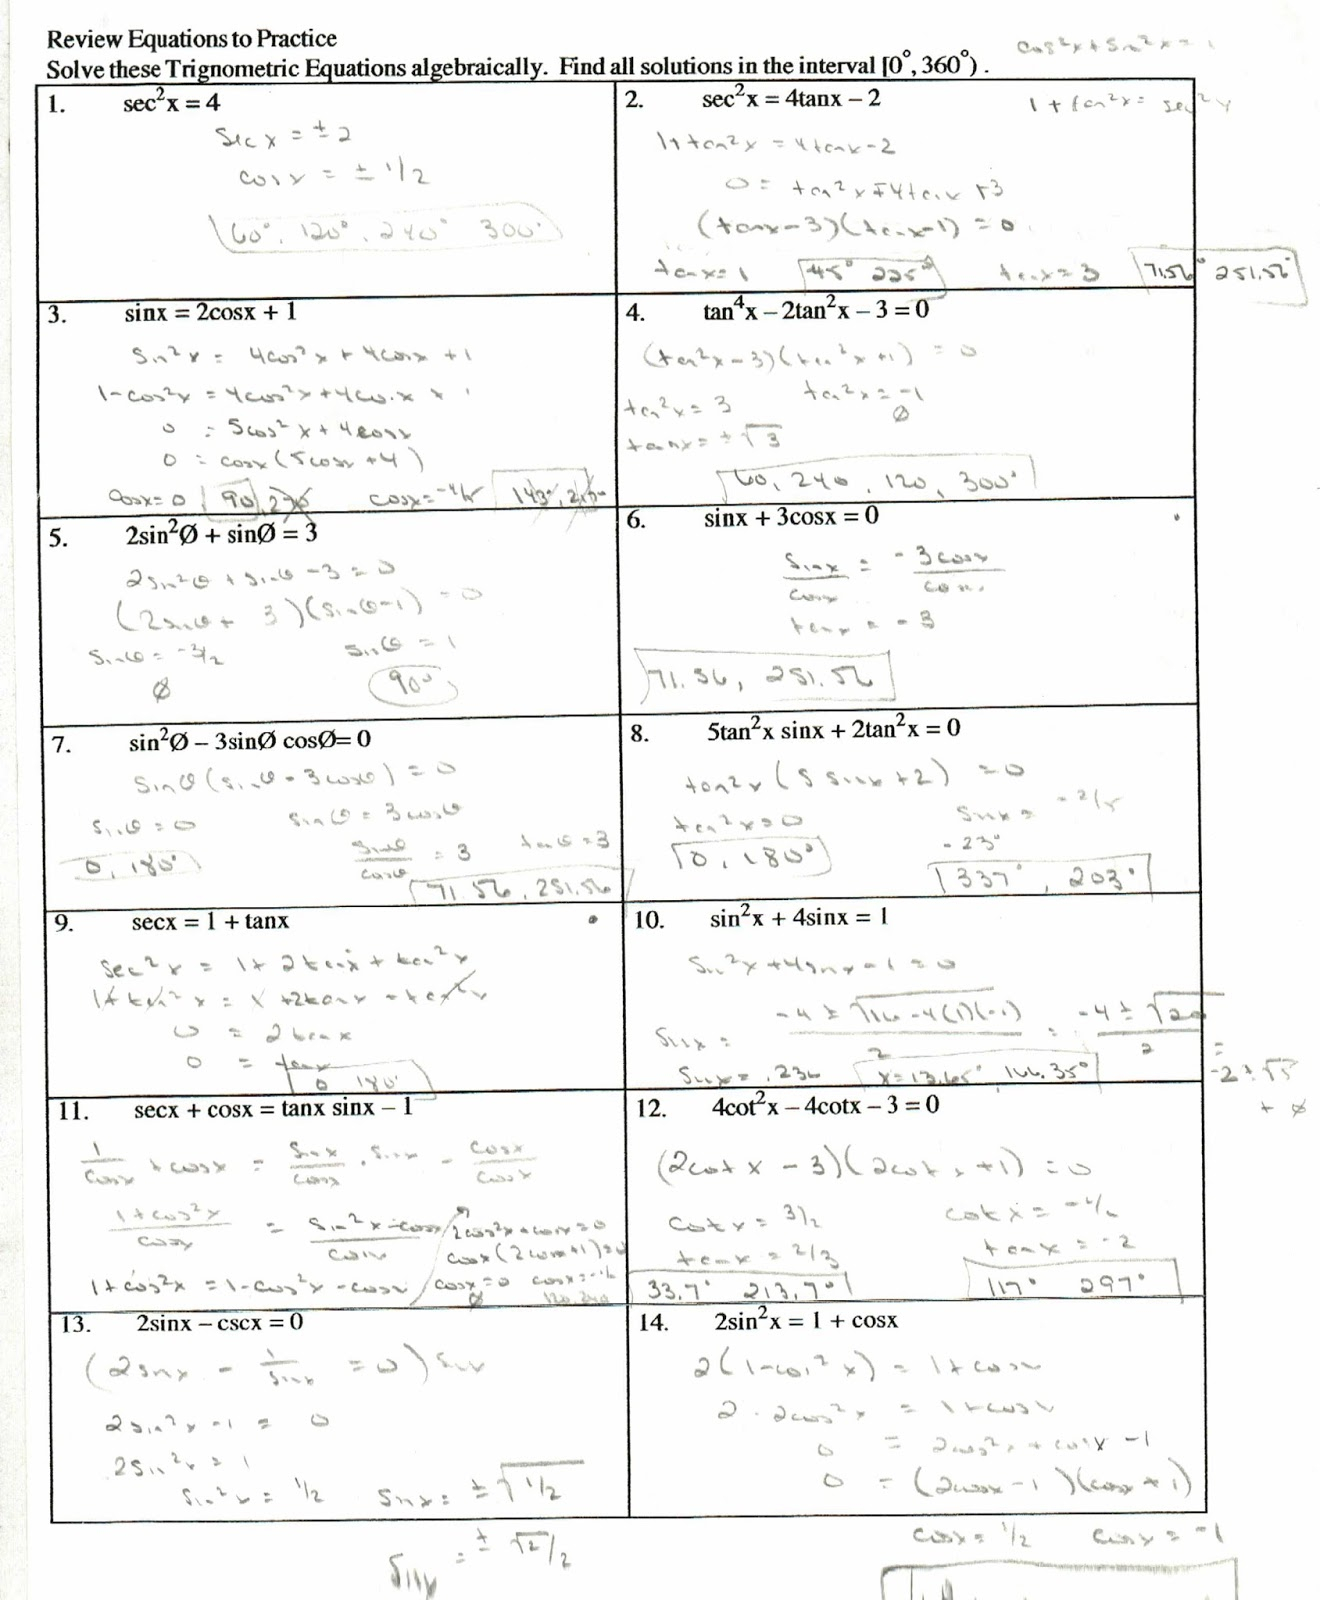 Review Equations to Practice
cos²x + sin²x = 1
Solve these Trignometric Equations algebraically. Find all solutions in the interval [0°, 360°).
1. sec²x = 4
sec x = ± 2
cos x = ± 1/2
60°, 120°, 240° 300°
2. sec²x = 4tanx – 2
1 + tan²x = sec²x
1 + tan²x = 4tanx - 2
0 = tan²x - 4tanx + 3
(tanx - 3)(tanx - 1) = 0
tanx = 1 45° 225° tanx = 3 71.56° 251.56°
3. sinx = 2cosx + 1
sin²x = 4cos²x + 4cosx + 1
1 - cos²x = 4cos²x + 4cosx + 1
0 = 5cos²x + 4cosx
0 = cosx(5cosx + 4)
cosx = 0 90, 270 cosx = -4/5 143°,
4. tan⁴x – 2tan²x – 3 = 0
(tan²x - 3)(tan²x + 1) = 0
tan²x = 3 tan²x = -1
Ø
tanx = ± √3
60, 240, 120, 300°
5. 2sin²Ø + sinØ = 3
2sin²θ + sinθ - 3 = 0
(2sinθ + 3)(sinθ - 1) = 0
sinθ = -3/2 sinθ = 1
Ø 90°
6. sinx + 3cosx = 0
sinx/cosx = -3cosx/cosx
tanx = -3
71.56, 251.56
7. sin²Ø – 3sinØ cosØ= 0
sinθ(sinθ - 3cosθ) = 0
sinθ = 0 sinθ = 3cosθ
0, 180° sinθ/cosθ = 3 tanθ = 3
71.56, 251.56
8. 5tan²x sinx + 2tan²x = 0
tan²x(5 sinx + 2) = 0
tan²x = 0 sinx = -2/5
0, 180° -23°
337°, 203°
9. secx = 1 + tanx
sec²x = 1 + 2tanx + tan²x
1 + tan²x = 1 + 2tanx + tan²x
0 = 2tanx
0 = tanx
0 180°
10. sin²x + 4sinx = 1
sin²x + 4sinx - 1 = 0
sinx = -4 ± √16 - 4(1)(-1) / 2 = -4 ± √20 / 2 = -2 ± √5
sinx = .236 x = 13.65°, 166.35°
+ Ø
11. secx + cosx = tanx sinx – 1
1/cosx + cosx = sinx/cosx · sinx - cosx/cosx
1 + cos²x/cosx = sin²x - cosx/cosx
1 + cos²x = 1 - cos²x - cosx
2cos²x + cosx = 0
cosx(2cosx + 1) = 0
cosx = 0 cosx = -1/2
Ø 120, 240
12. 4cot²x – 4cotx – 3 = 0
(2cotx - 3)(2cotx + 1) = 0
cotx = 3/2 cotx = -1/2
tanx = 2/3 tanx = -2
33.7° 213.7° 117° 297°
13. 2sinx – cscx = 0
(2sinx - 1/sinx = 0) sinx
2sin²x - 1 = 0
2sin²x = 1
sin²x = 1/2 sinx = ± √1/2
sinx = ± √2/2
14. 2sin²x = 1 + cosx
2(1 - cos²x) = 1 + cosx
2 - 2cos²x = 1 + cosx
0 = 2cos²x + cosx - 1
0 = (2cosx - 1)(cosx + 1)
cosx = 1/2 cosx = -1